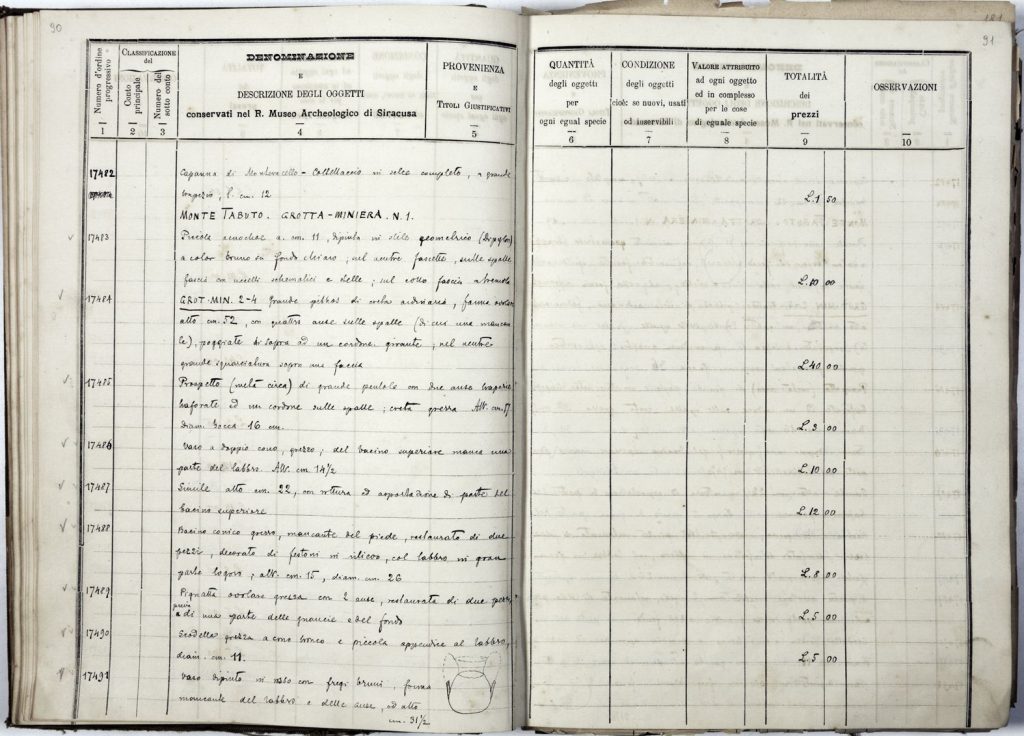 90
Numero d'ordine progressivo
1
CLASSIFICAZIONE del
Conto principale
2
Numero del sotto conto
3
DENOMINAZIONE
E
DESCRIZIONE DEGLI OGGETTI
conservati nel R. Museo Archeologico di Siracusa
4
PROVENIENZA
E
TITOLI GIUSTIFICATIVI
5
17482
Capanna di Monteracello - Coltellaccio in selce completo, a grande
trapezio, l. cm. 12
MONTE TABUTO. GROTTA-MINIERA. N. 1.
17483
Piccola oenochoe a. cm. 11, dipinta in stile geometrico (Dipylon)
a color bruno su fondo chiaro; nel ventre fascette, sulle spalle
fascia con uccelli schematici e stelle; sul collo fascia a tremolo
17484
GROT. MIN. 2-4 Grande pithos di creta, forma ovolare
alto cm. 52, con quattro anse sulle spalle (di cui una mancan
te), poggiate di sopra ad un cordone girante; nel ventre
grande squarciatura sopra una faccia
17485
Prospetto (metà circa) di grande pentola con due anse
traforate ed un cordone sulle spalle; creta grezza Alt. cm. 17
diam. bocca 16 cm.
17486
Vaso a doppio cono, grezzo; del bacino superiore manca una
parte del labbro. Alt. cm 14 1/2
17487
Simile alto cm. 22, con rottura ed asportazione di parte del
bacino superiore
17488
Bacino conico grezzo, mancante del piede, restaurato di due
pezzi, decorato di festoni in rilievo, col labbro in gran
parte logoro; alt. cm. 15, diam. cm. 26
17489
Pignatta ovolare grezza con 2 anse, restaurata di due pezzi
priva
di una parte delle guancie e del fondo
17490
Scodella grezza a cono tronco e piccola appendice al labbro,
diam. cm. 11.
17491
Vaso dipinto in rosso con fregi bruni, forma
mancante del labbro e delle anse, ad alto
cm. 31 1/2
181
91
QUANTITÀ
degli oggetti
per
ogni egual specie
6
CONDIZIONE
degli oggetti
cioè: se nuovi, usati
od inservibili
7
VALORE ATTRIBUITO
ad ogni oggetto
ed in complesso
per le cose
di eguale specie
8
TOTALITÀ
dei
prezzi
9
OSSERVAZIONI
10
L. 1 50
L. 10 00
L. 40 00
L. 3 00
L. 10 00
L. 12 00
L. 8 00
L. 5 00
L. 5 00